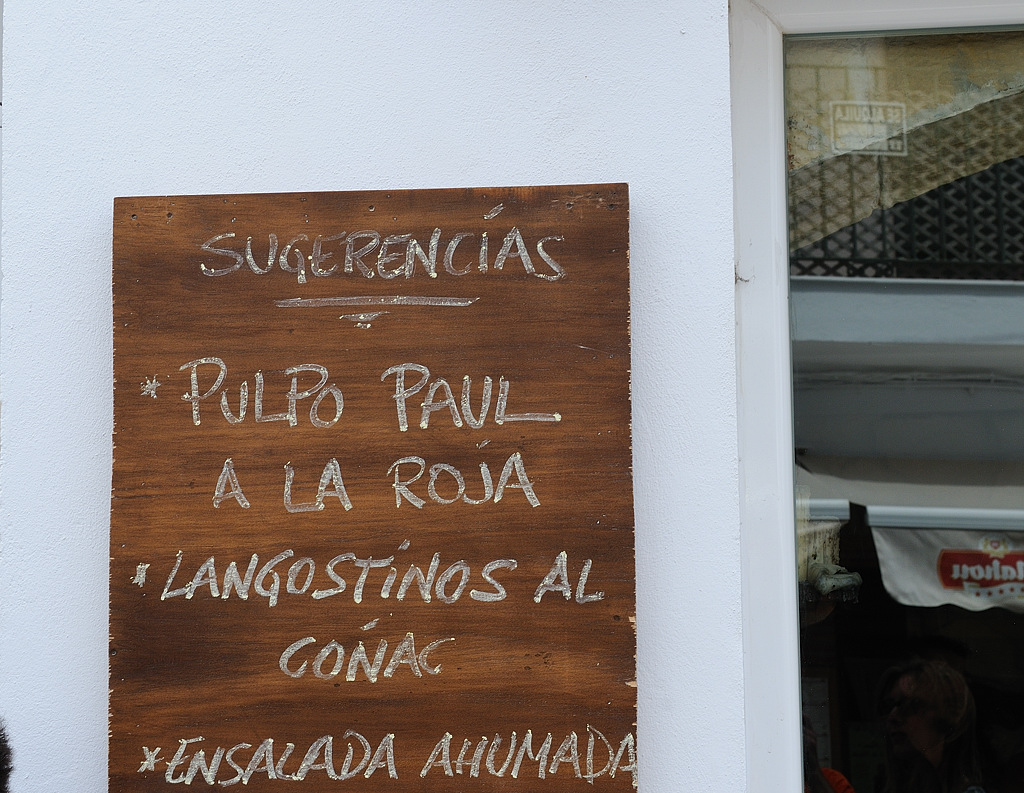 SUGERENCÍAS
* PULPO PAUL
A LA ROJA
* LANGOSTINOS AL
COÑAC
* ENSALADA AHUMADA
SE ALQUILA
Mahou